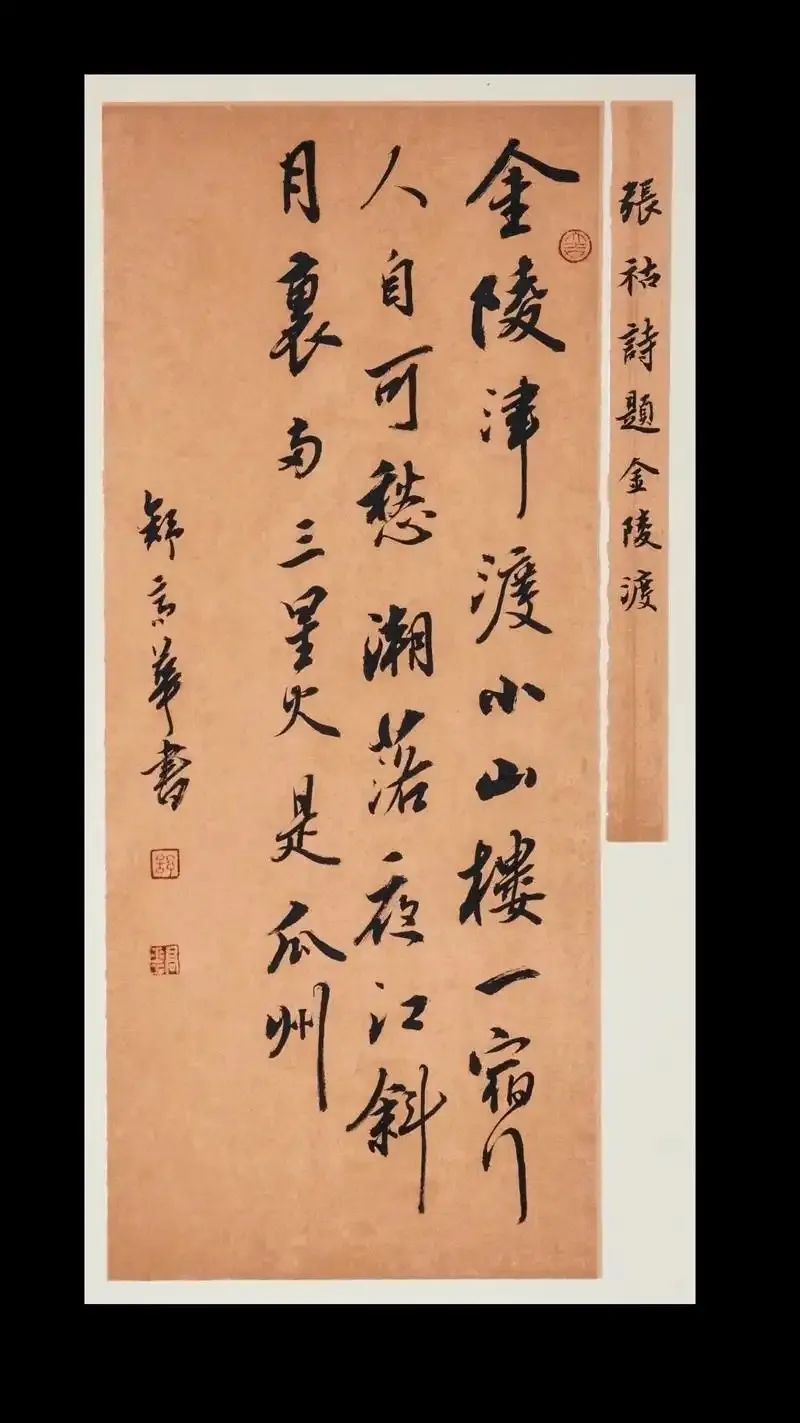 張祜詩題金陵渡
金陵津渡小山樓一宿行
人自可愁潮落夜江斜
月裏兩三星火是瓜州
舒京華書
舒